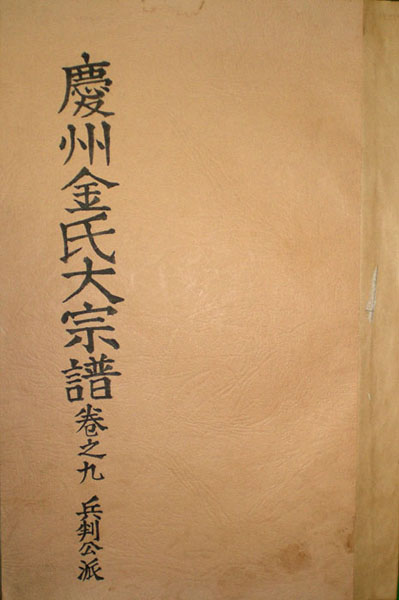 慶州金氏大宗譜卷之九 兵判公派